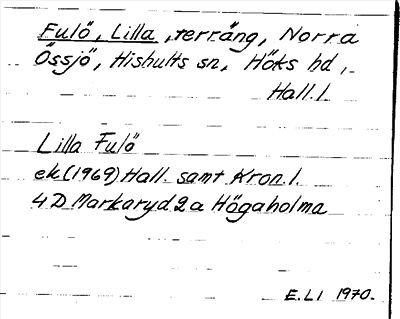 Fulö, Lilla, terräng, Norra
Össjö, Hishults sn, Höks hd,
Hall. l.
Lilla Fulö
ek (1969) Hall. samt Kron. l.
4D Markaryd 2a Högaholma
E.LI 1970.